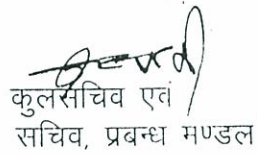 कुलसचिव एवं
सचिव, प्रबन्ध मण्डल